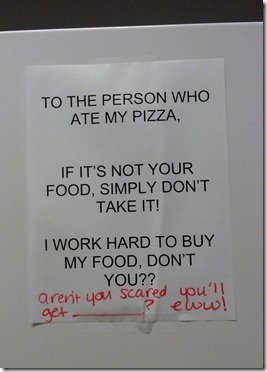 TO THE PERSON WHO
ATE MY PIZZA,
IF IT'S NOT YOUR
FOOD, SIMPLY DON'T
TAKE IT!
I WORK HARD TO BUY
MY FOOD, DON'T
YOU??
aren't you scared you'll
get ________? eww!